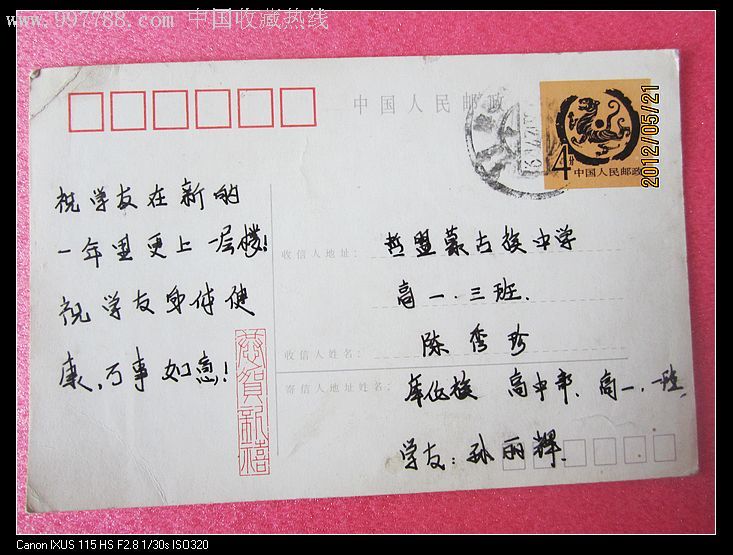 www.997788.com 中国收藏热线
中国人民邮政
4分
中国人民邮政
2012/05/21
祝学友在新的
一年里更上一层楼!
祝学友身体健
康,万事如意!
恭贺新禧
收信人地址:
哲盟蒙古族中学
高一.三班.
收信人姓名:
陈秀珍
寄信人地址姓名:
高中部、高一.一班
学友:孙丽辉.
Canon IXUS 115 HS F2.8 1/30s ISO320